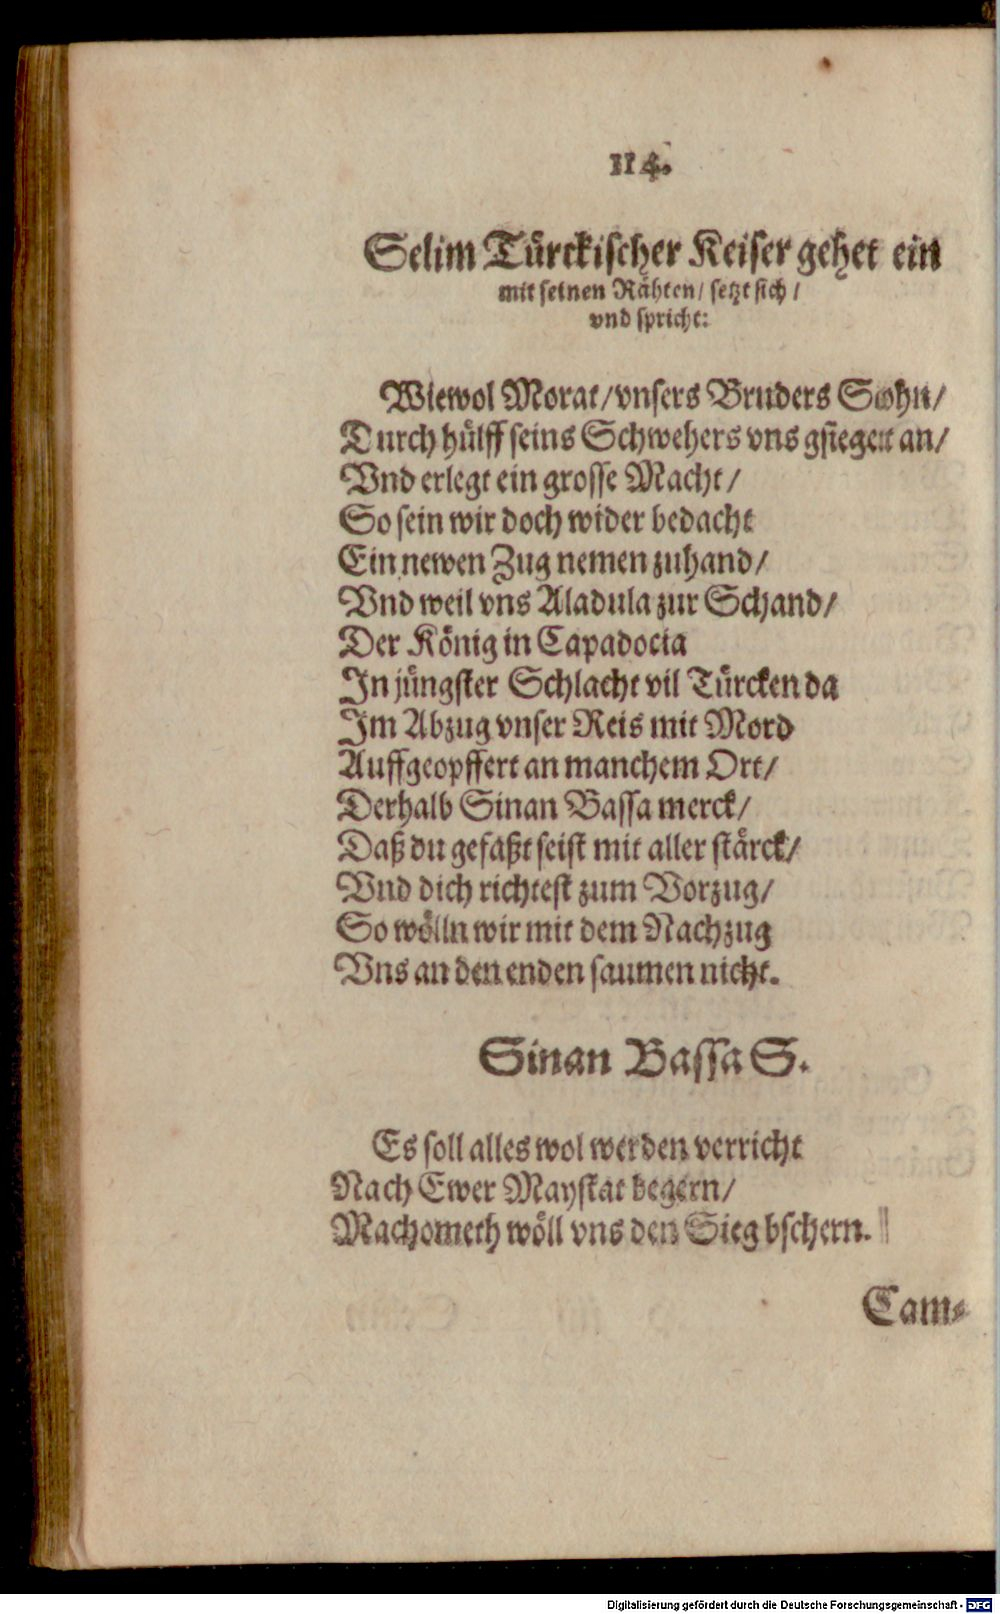 114.
Selim Türckischer Keiser gehet ein
mit seinen Rähten/ setzt sich/
vnd spricht:
Wiewol Morat/ vnsers Bruders Sohn/
Durch hülff seins Schwehers vns gsieget an/
Vnd erlegt ein grosse Macht/
So sein wir doch wider bedacht
Ein newen Zug nemen zuhand/
Vnd weil vns Aladula zur Schand/
Der König in Capadocia
In jüngster Schlacht vil Türcken da
Im Abzug vnser Reis mit Mord
Auffgeopffert an manchem Ort/
Derhalb Sinan Bassa merck/
Daß du gefaßt seist mit aller stärck/
Vnd dich richtest zum Vorzug/
So wölln wir mit dem Nachzug
Vns an den enden saumen nicht.
Sinan Bassa S.
Es soll alles wol werden verricht
Nach Ewer Maystat begern/
Machometh wöll vns den Sieg bschern.
Cam-
Digitalisierung gefördert durch die Deutsche Forschungsgemeinschaft - DFG